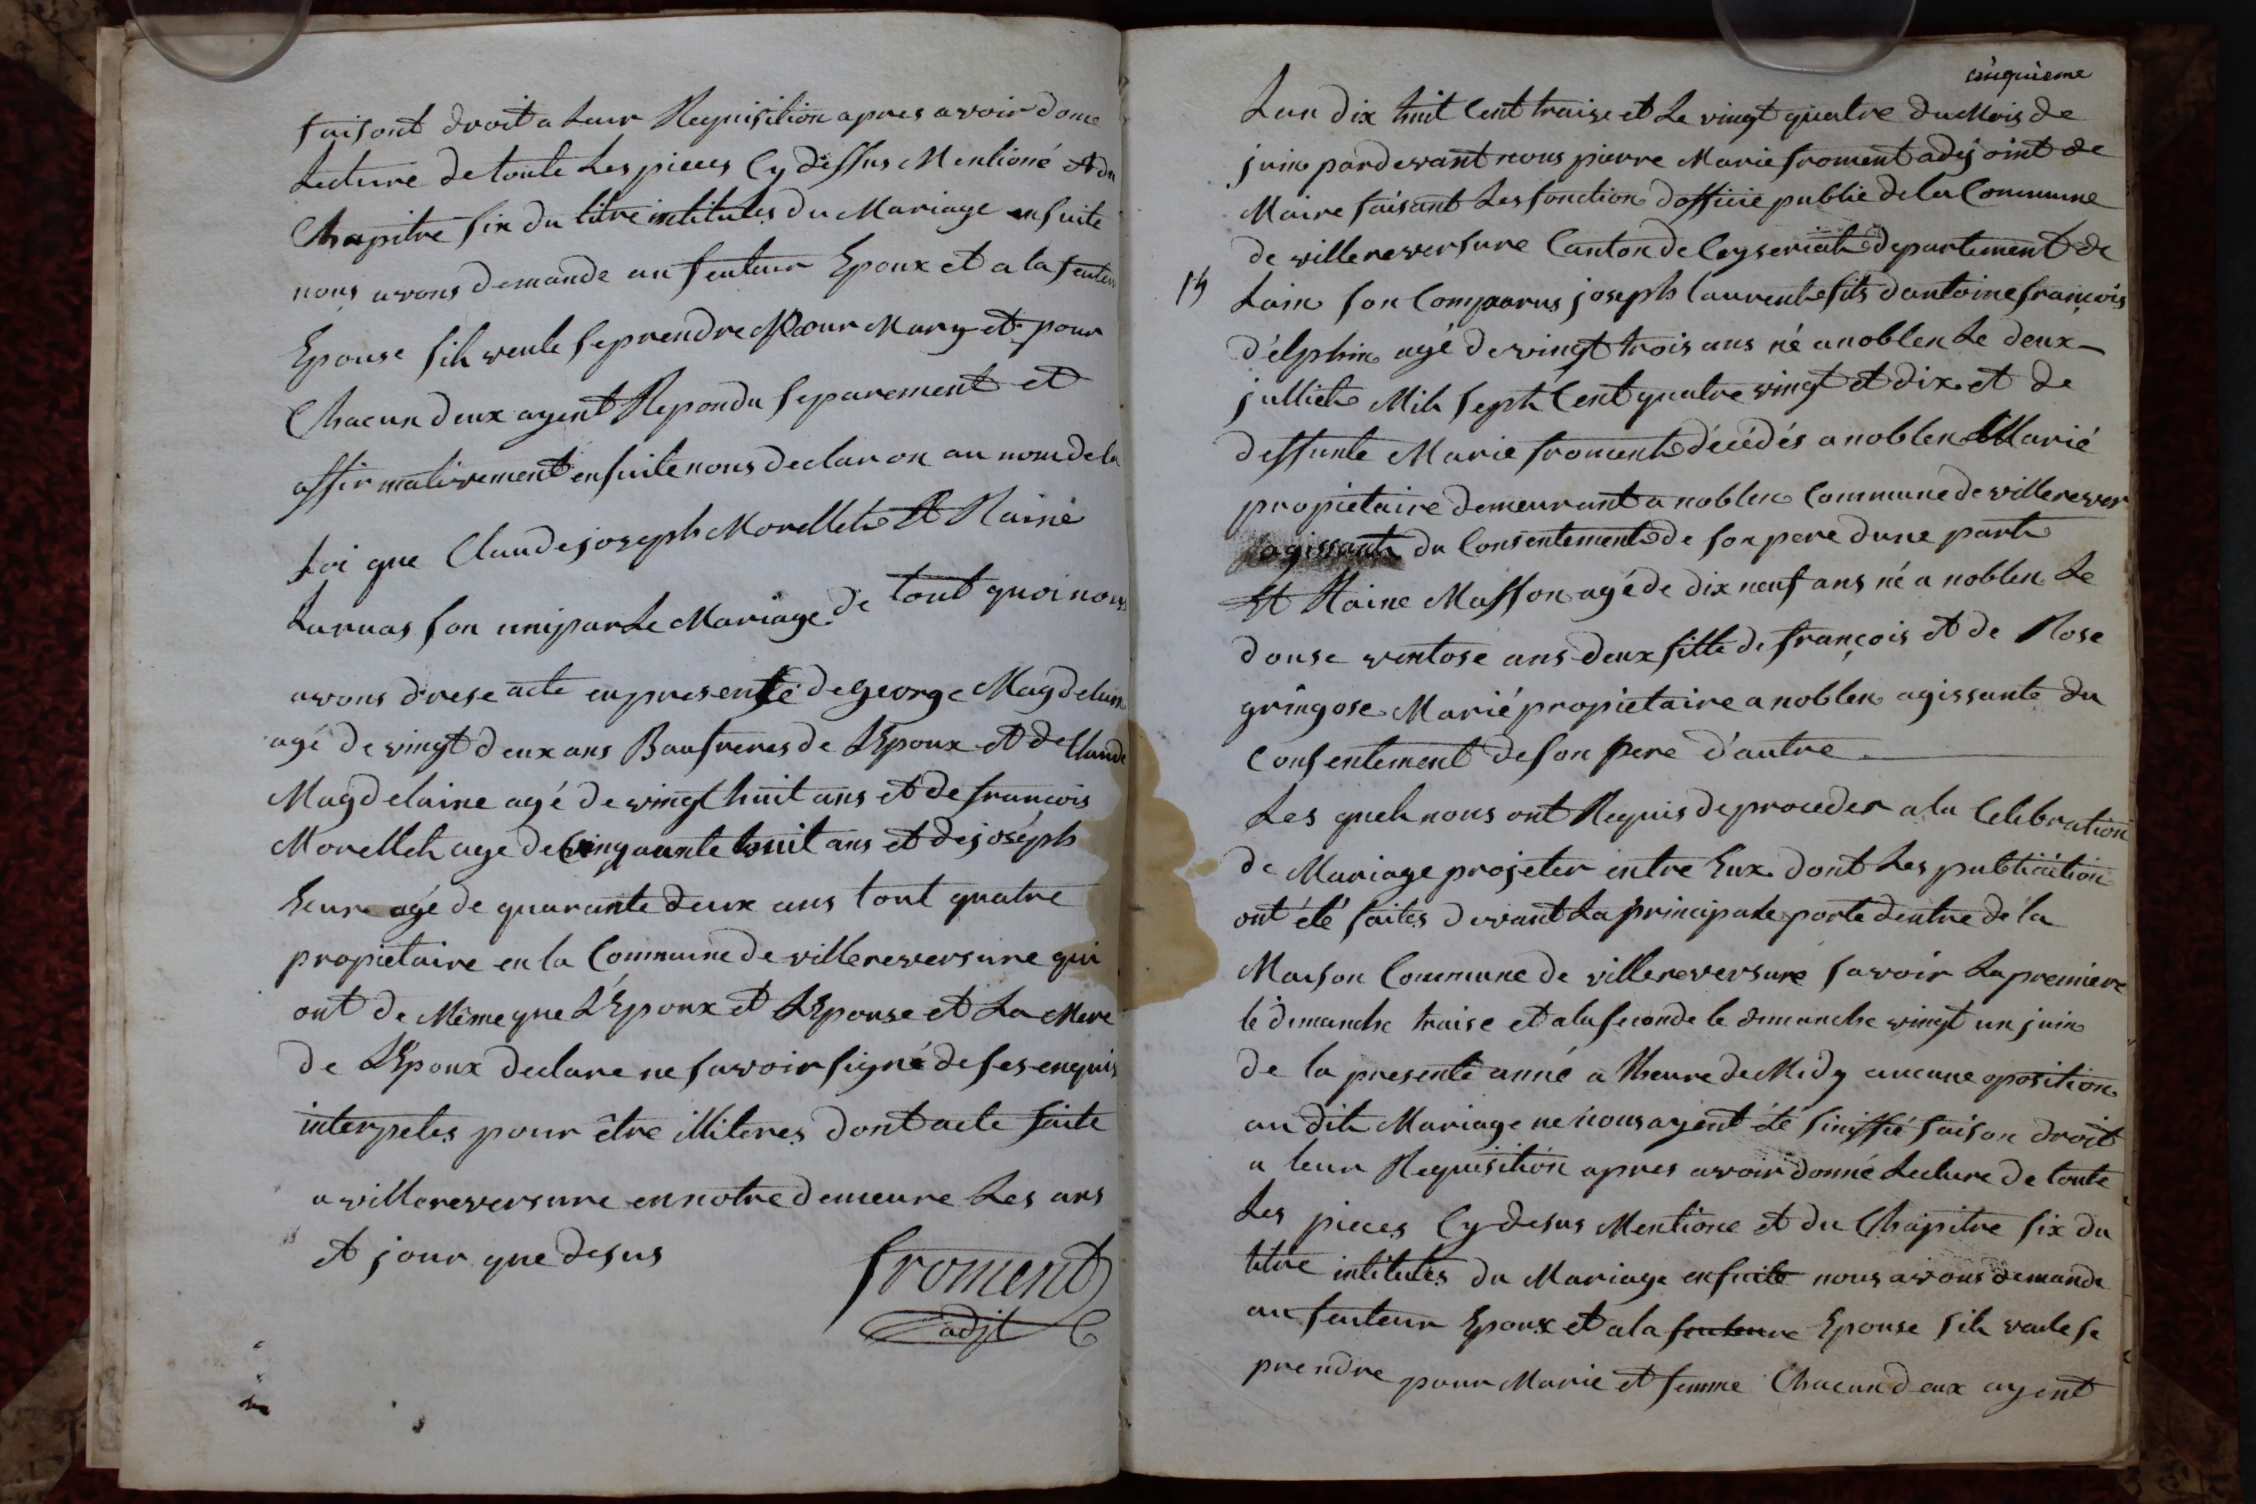 faisont droit a Leur Requisition apres avoir done
Lecture de toute Les pieces Cy dessus Mentioné Et du
Chapitre six du titre intitules du Mariage ensuite
nous avons demande au feuteur Epoux et a la feuteur
Epouse sih veule se prendre pour Mary et pour
Chacun deux ayent Repondu separement et
affirmativement ensuite nous declaron au nom de la
Loi que Claude joseph Morelleh Et Raine
Laruas son uni par Le Mariage de tout quoi nous
avons drese acte en presente de george Magdelain
agé de vingt deux ans Baufreres de LEpoux et de Claude
Magdelaine agé de vingt huit ans et de françois
Morelleh age de Cinquante huit ans et de joséph
heur agé de quarante deux ans tout quatre
propietaire en la Commune de villereversure qui
ont de Même que LÉpoux et LEpouse et La Mere
de LEpoux declare ne savoir signé de ses enquis
interpeles pour être illiteres dont acte faite
a villereversure en notre demeure Les ans
et jour que desus
froment
adjt
cinquieme
Lan dix huit Cent traise et Le vingt quatre du Mois de
juin pardevant nous pierre Marie froment adejoint de
Maire faisant Les fonction dofficié public de la Commune
de villereversure Canton de Ceyseriah departement de
Lain son Comparus joseph laurent fils dantoine françois
d'élphin agé de vingt trois ans né a noblen Le deux
julliet Mih seph Cent quatre vingt et dix et de
deffunte Marie froment décédés a noblen Marié
propietaire demeurant a noblen Commune de villerever
agissant du Consentement de son pere dune part
Et Raine Masson agé de dix neuf ans né a noblen Le
douse ventose ans deux fille de françois et de Rose
gringose Marié propietaire a noblen agissante du
Consentement de son pere d'autre
Les queh nous ont Requis de proceder a la Celebration
de Mariage projeter entre Eux dont Les publication
ont été faites devant La principale porte dentre de la
Maison Commune de villereversure savoir La premiere
le dimanche traise et a la seconde le dimanche vingt un juin
de la presente anné a Lheure de Midy aucune oposition
au dih Mariage ne nous ayent été siniffié faison droit
a leur Requisition apres avoir donné Lecture de toute
Les pieces Cy desus Mentione et du Chapitre six du
titre intitules du Mariage ensuite nous avons demande
au feuteur Epoux et a la feuteure Epouse sih veule se
prendre pour Marie et femme Chacun deux ayent